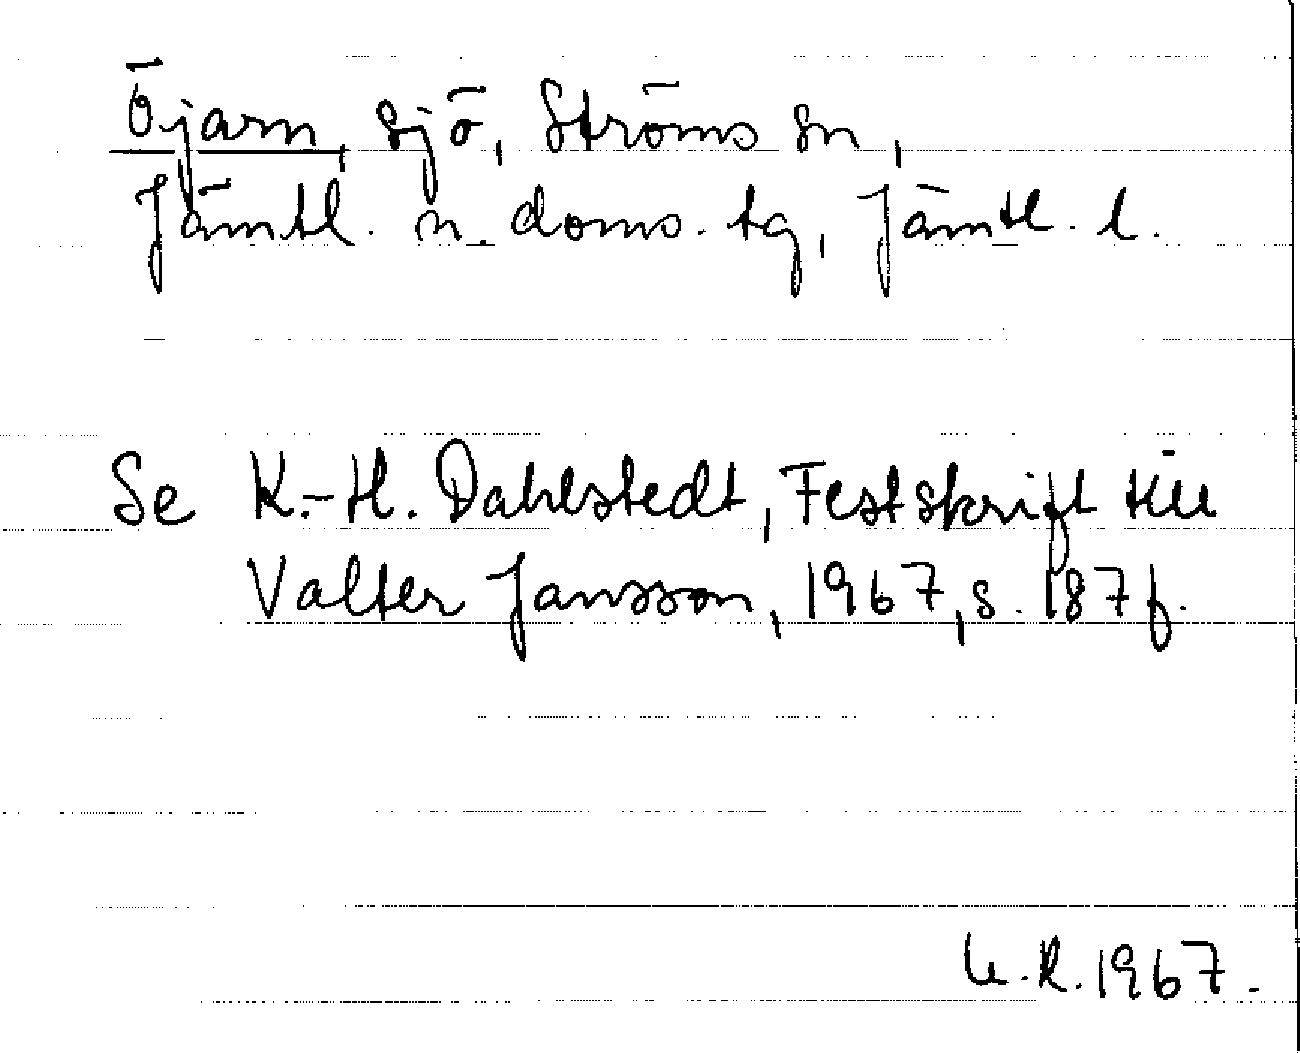 Öjarn, sjö, Ströms sn,
Jämtl. n. doms. tg, Jämtl. l.
Se K.-H. Dahlstedt, Festskrift till
Valter Jansson, 1967, s. 187 f.
U.R. 1967.